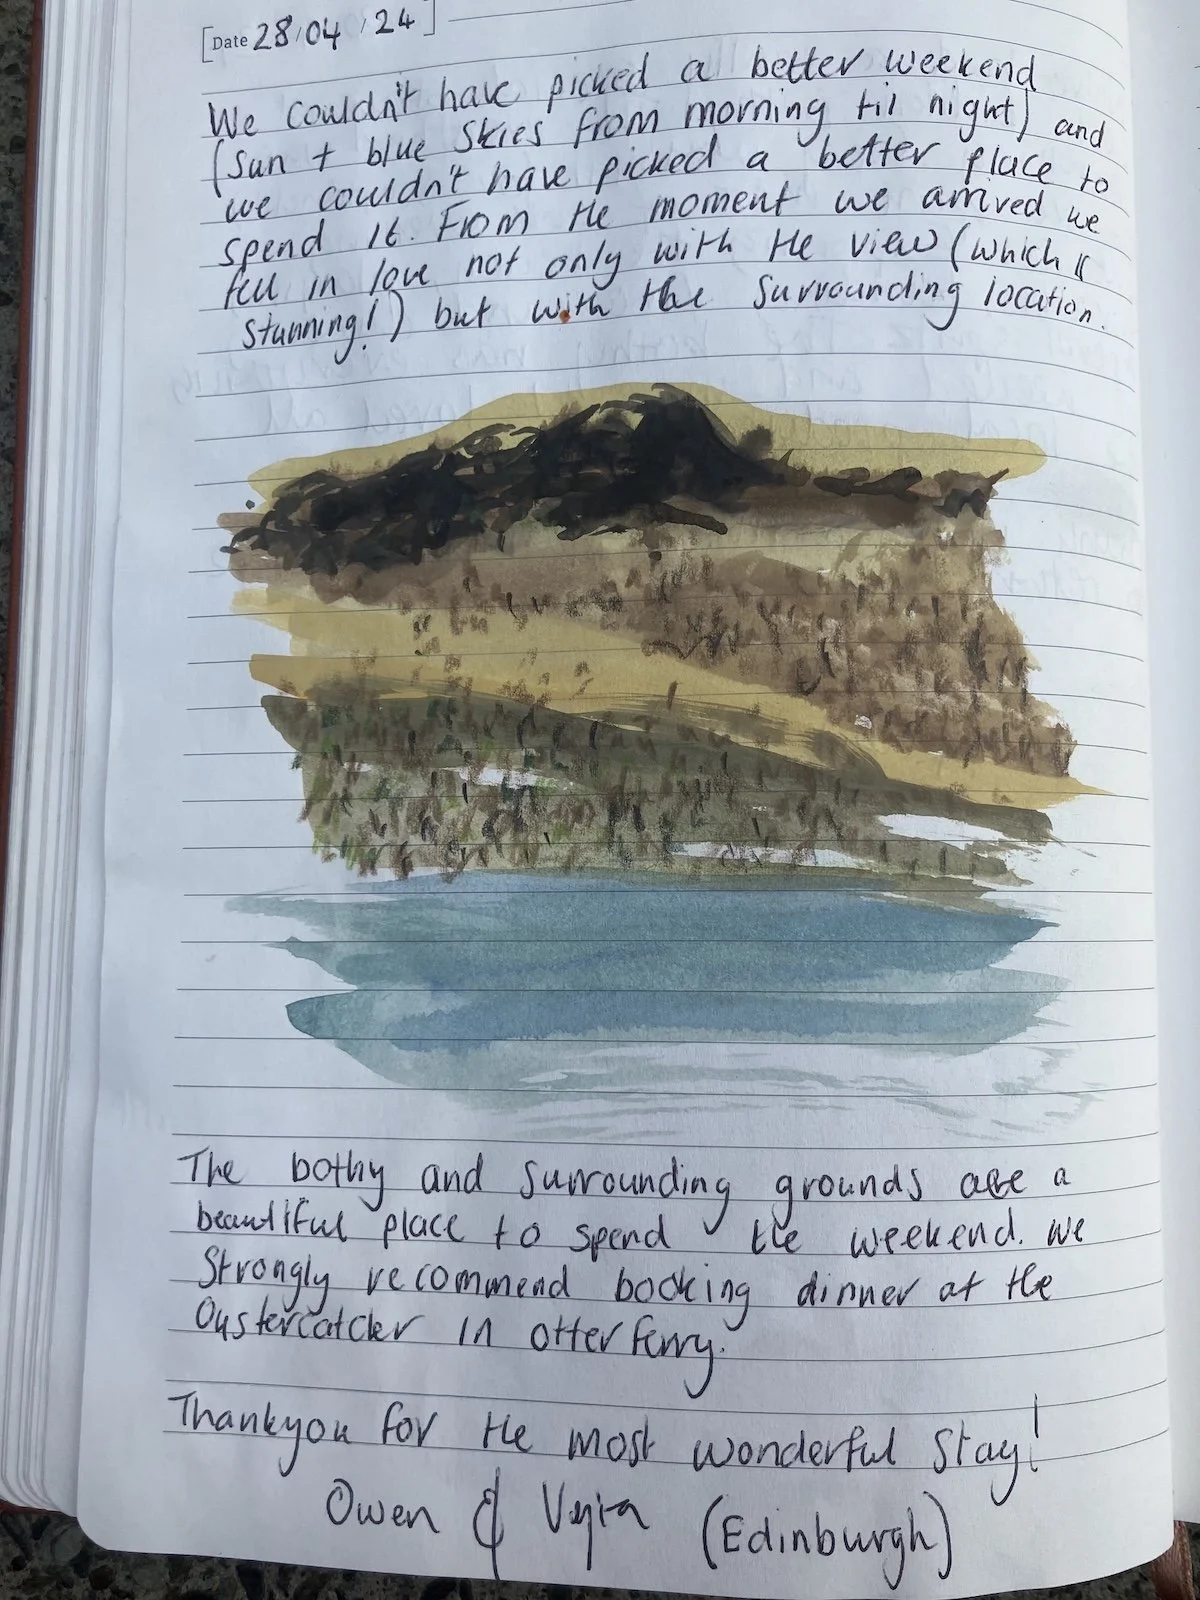 [Date 28/04/24]
We couldn't have picked a better weekend
(sun + blue skies from morning til night) and
we couldn't have picked a better place to
spend it. From the moment we arrived we
fell in love not only with the view (which is
stunning!) but with the surrounding location.
The bothy and surrounding grounds are a
beautiful place to spend the weekend. We
strongly recommend booking dinner at the
Oystercatcher in otter ferry.
Thankyou for the most wonderful stay!
Owen & (Edinburgh)